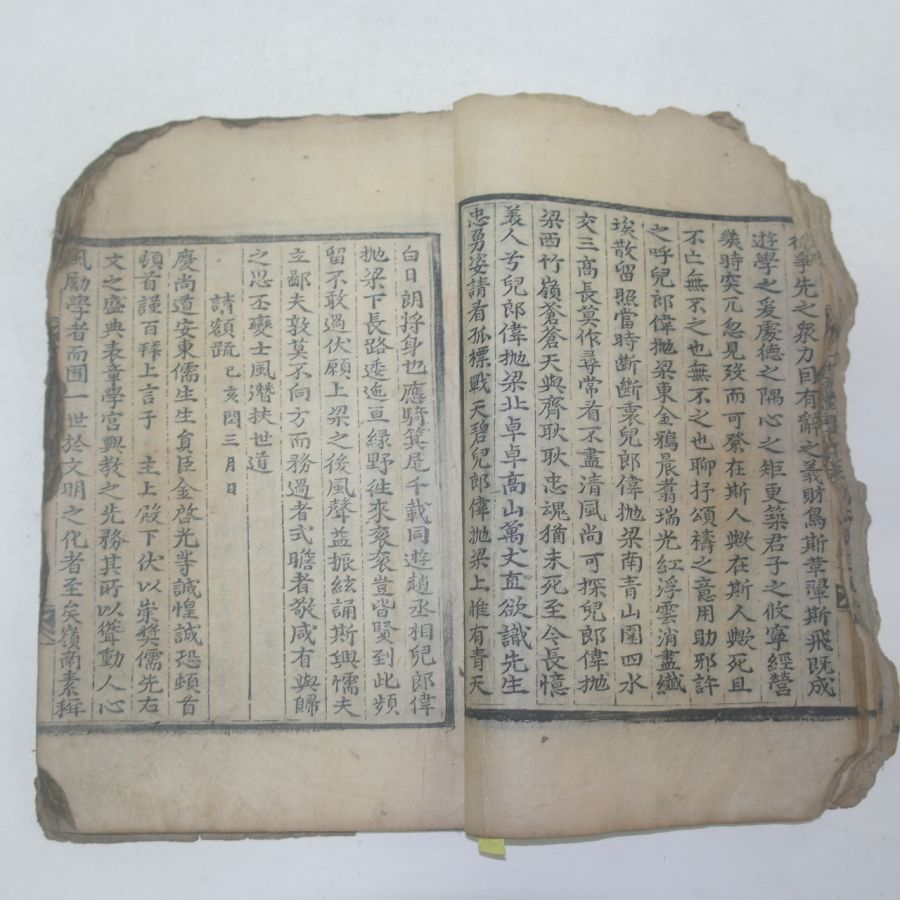 寧先之衆力曰有辭之義財鳥斯革翬斯飛既成
遊學之爰處德之隅心之矩更築君子之攸寧經營
幾時突兀忽見後而可發在斯人歟在斯人歟死且
不亡無不之也無不之也聊抒頌禱之意用助邪許
之呼兒郞偉抛梁東金鴉晨翥瑞光紅浮雲消盡纖
埃散留照當時斷斷衷兒郞偉抛梁南青山圍四水
交三高長莫作尋常看不盡清風尚可探兒郞偉抛
梁西竹嶺蒼蒼天與齊耿耿忠魂猶未死至今長憶
美人兮兒郞偉抛梁北卓卓高山萬丈直欲識先生
忠勇姿請看孤標戰天碧兒郞偉抛梁上惟有青天
白日朗將身也應騎箕尾千載同遊趙丞相兒郞偉
抛梁下長路逶迤亘綠野往來袞袞豈皆賢到此頻
留不敢過伏願上梁之後風聲益振絃誦斯興懦夫
立鄙夫敦莫不向方而務過者式瞻者敬咸有與歸
之思丕變士風潛扶世道
請額疏 己亥閏三月日
慶尚道安東儒生生員臣金啓光等誠惶誠恐頓首
頓首謹百拜上言于 主上殿下伏以崇奬儒先右
文之盛典表章學宮興教之先務其所以聳動人心
風勵學者而囿一世於文明之化者至矣嶺南素稱